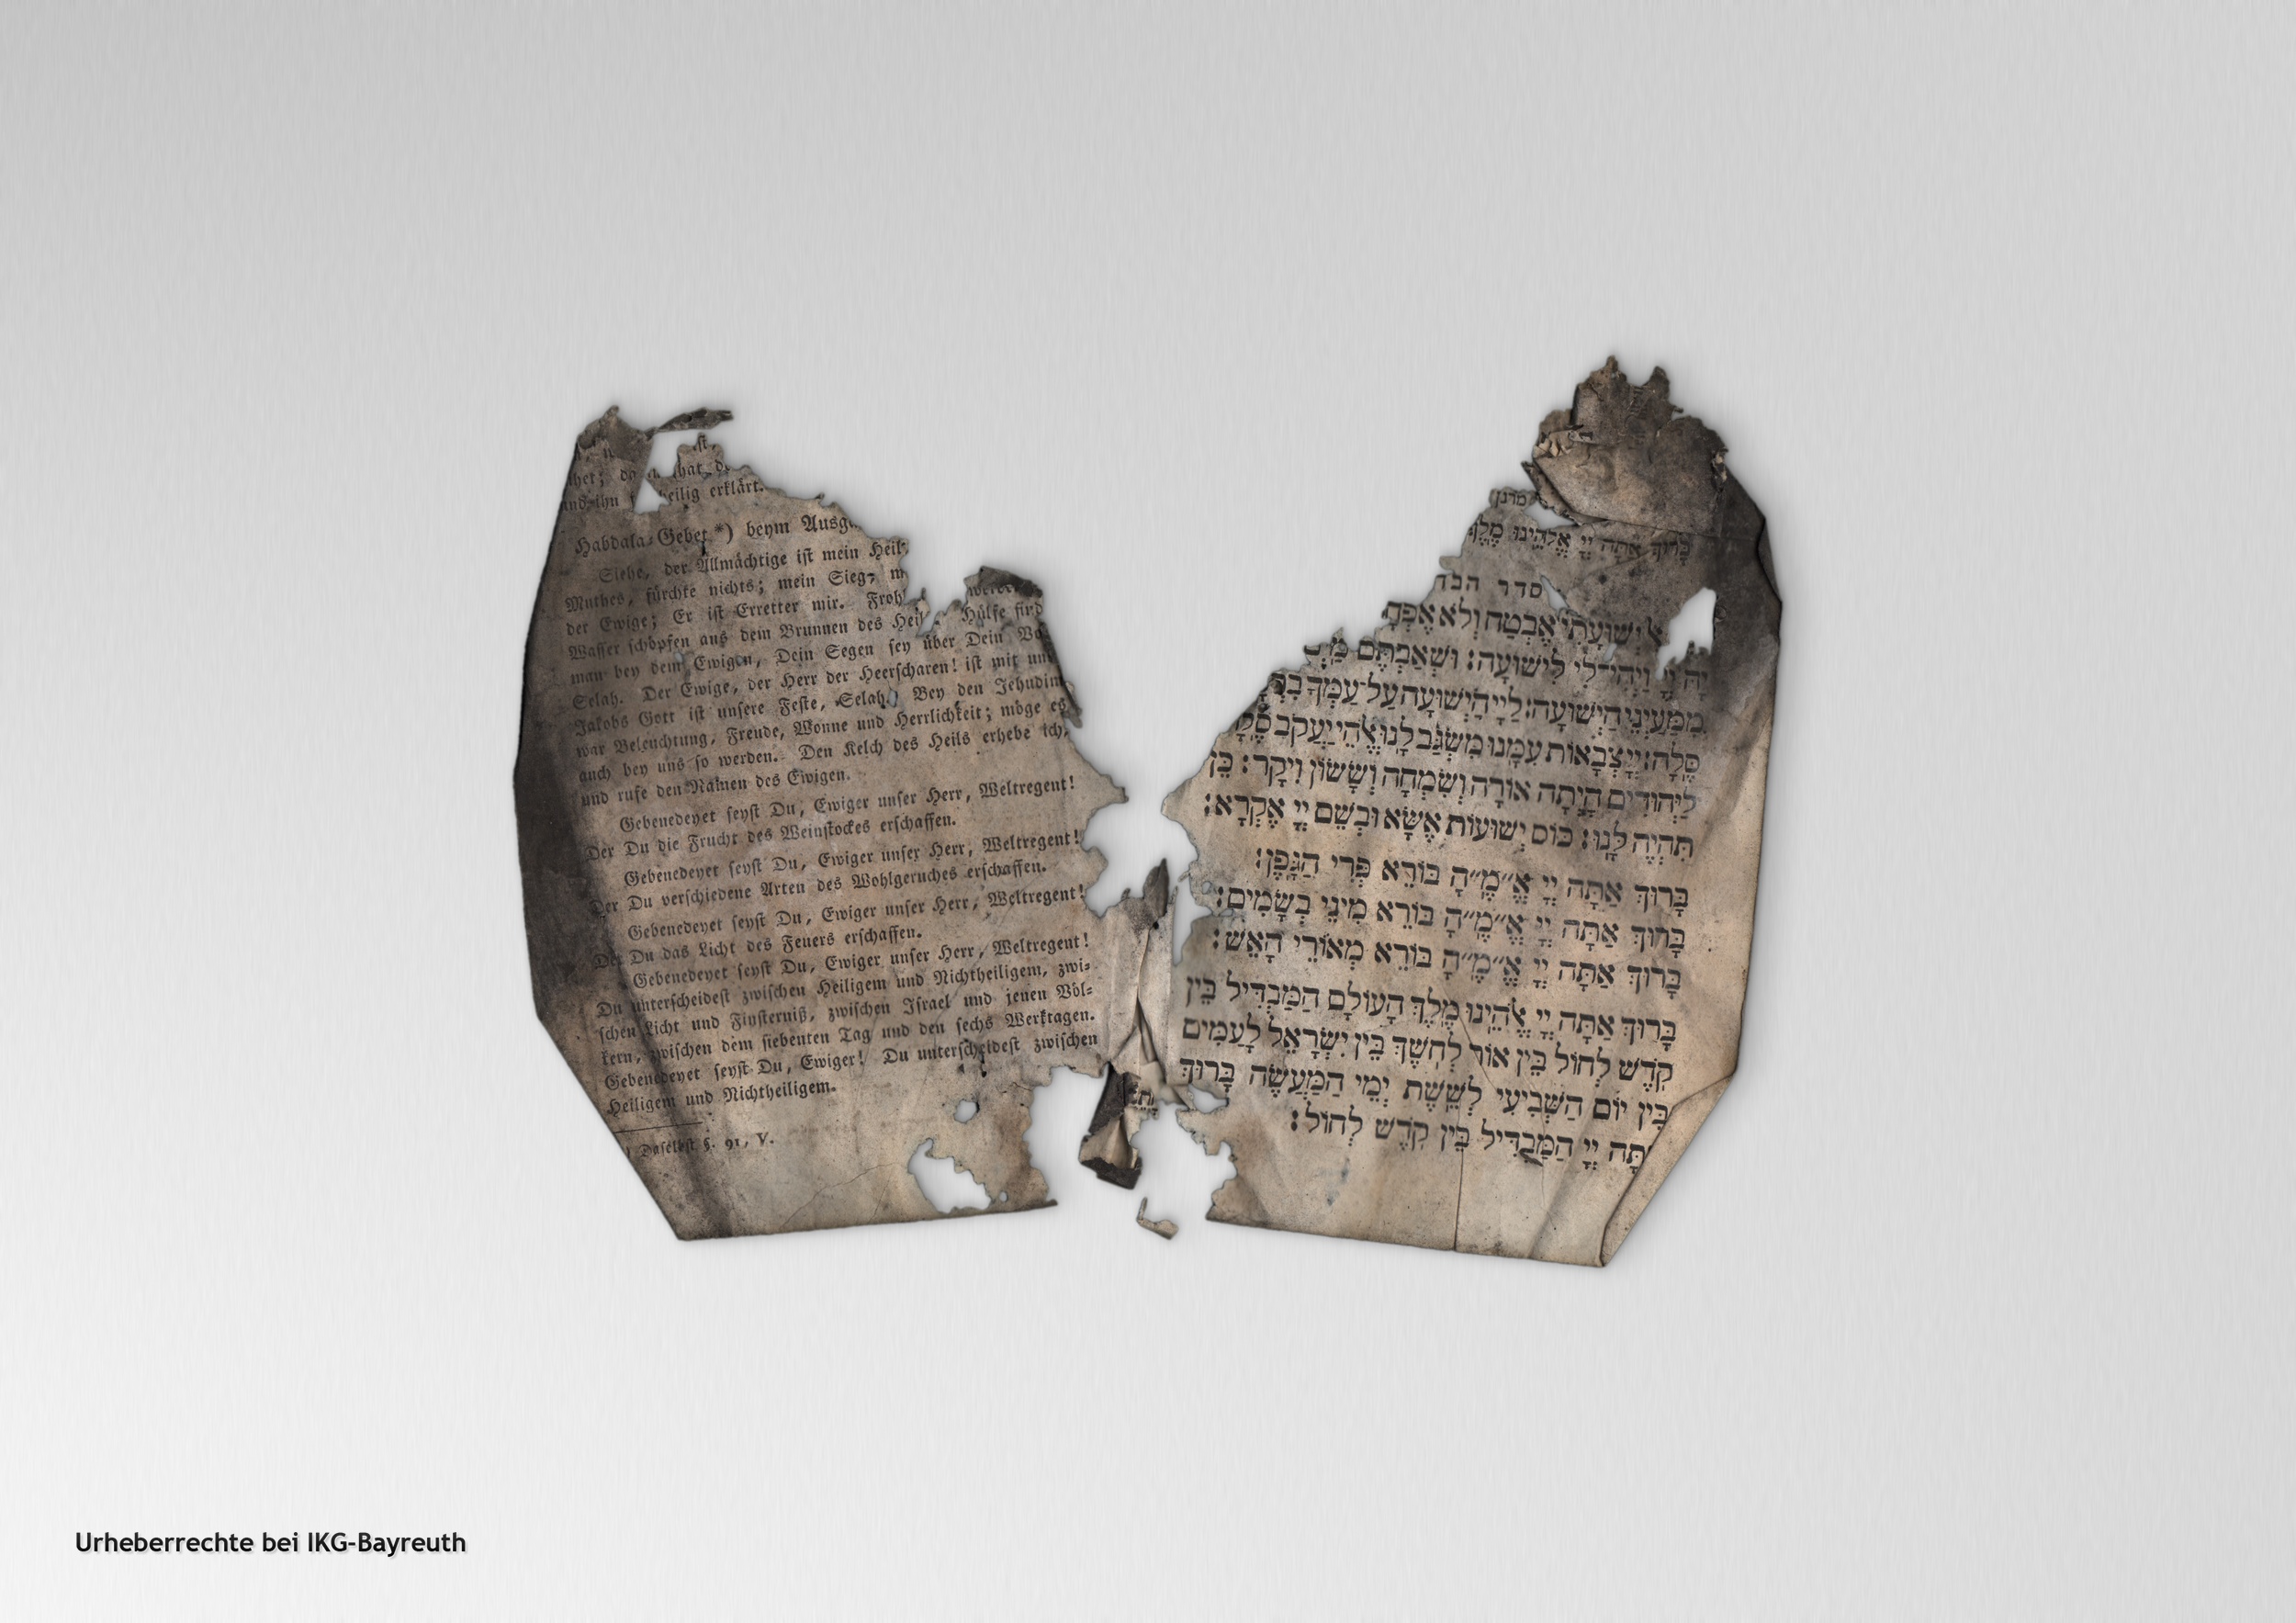 st,
hat d
und ihn heilig erklärt.
Habdala-Gebet *) beym Ausg
Siehe, der Allmächtige ist mein Heil
Muthes, fürchte nichts; mein Sieg- m
der Ewige; Er ist Erretter mir. Froh werde
Wasser schöpfen aus dem Brunnen des Heil Hülfe find
man bey dem Ewigen, Dein Segen sey über Dein Vo
Selah. Der Ewige, der Herr der Heerscharen! ist mit uns
Jakobs Gott ist unsere Feste, Selah! Bey den Jehudim
war Beleuchtung, Freude, Wonne und Herrlichkeit; möge es
auch bey uns so werden. Den Kelch des Heils erhebe ich,
und rufe den Namen des Ewigen.
Gebenedeyet seyst Du, Ewiger unser Herr, Weltregent!
Der Du die Frucht des Weinstockes erschaffen.
Gebenedeyet seyst Du, Ewiger unser Herr, Weltregent!
Der Du verschiedene Arten des Wohlgeruches erschaffen.
Gebenedeyet seyst Du, Ewiger unser Herr, Weltregent!
Der Du das Licht des Feuers erschaffen.
Gebenedeyet seyst Du, Ewiger unser Herr, Weltregent!
Du unterscheidest zwischen Heiligem und Nichtheiligem, zwi-
schen Licht und Finsterniß, zwischen Israel und jenen Völ-
kern, zwischen dem siebenten Tag und den sechs Werktagen.
Gebenedeyet seyst Du, Ewiger! Du unterscheidest zwischen
Heiligem und Nichtheiligem.
Daselbst §. 91, V.
מרנן
בָּרוּךְ אַתָּה יְיָ אֱלֹהֵינוּ מֶלֶךְ
סדר הבד
יְשׁוּעָתִי אֶבְטַח וְלֹא אֶפְחָ
יָהּ יְיָ וַיְהִי־לִי לִישׁוּעָה: וּשְׁאַבְתֶּם מַ
מִמַּעַיְנֵי הַיְשׁוּעָה: לַייָ הַיְשׁוּעָה עַל־עַמְּךָ בִרְ
סֶּלָה: יְיָ צְבָאוֹת עִמָּנוּ מִשְׂגָּב לָנוּ אֱלֹהֵי יַעֲקֹב סֶלָ
לַיְּהוּדִים הָיְתָה אוֹרָה וְשִׂמְחָה וְשָׂשׂוֹן וִיקָר: כֵּן
תִּהְיֶה לָּנוּ: כּוֹס יְשׁוּעוֹת אֶשָּׂא וּבְשֵׁם יְיָ אֶקְרָא:
בָּרוּךְ אַתָּה יְיָ אֱ״מֶ״הָ בּוֹרֵא פְּרִי הַגָּפֶן:
בָּרוּךְ אַתָּה יְיָ אֱ״מֶ״הָ בּוֹרֵא מִינֵי בְשָׂמִים:
בָּרוּךְ אַתָּה יְיָ אֱ״מֶ״הָ בּוֹרֵא מְאוֹרֵי הָאֵשׁ:
בָּרוּךְ אַתָּה יְיָ אֱלֹהֵינוּ מֶלֶךְ הָעוֹלָם הַמַּבְדִּיל בֵּין
קֹדֶשׁ לְחוֹל בֵּין אוֹר לְחֹשֶׁךְ בֵּין יִשְׂרָאֵל לָעַמִּים
בֵּין יוֹם הַשְּׁבִיעִי לְשֵׁשֶׁת יְמֵי הַמַּעֲשֶׂה בָּרוּךְ
תָּה יְיָ הַמַּבְדִּיל בֵּין קֹדֶשׁ לְחוֹל:
Urheberrechte bei IKG-Bayreuth